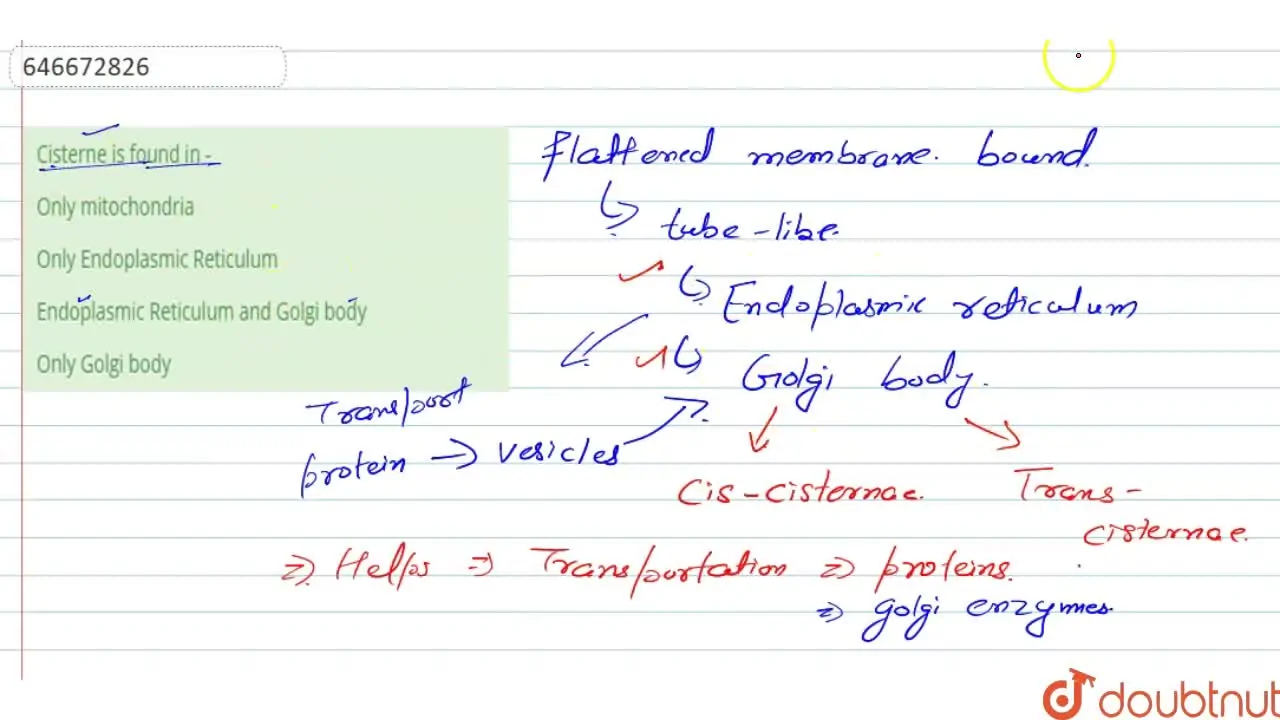 646672826
Cisterne is found in -
Only mitochondria
Only Endoplasmic Reticulum
Endoplasmic Reticulum and Golgi body
Only Golgi body
flattened membrane. bound.
tube-like.
Endoplasmic reticulum
Golgi body.
Transport
protein → vesicles
Cis-cisternae.
Trans-
cisternae.
⇒ Helps ⇒ Transportation ⇒ proteins.
⇒ golgi enzymes.
doubtnut